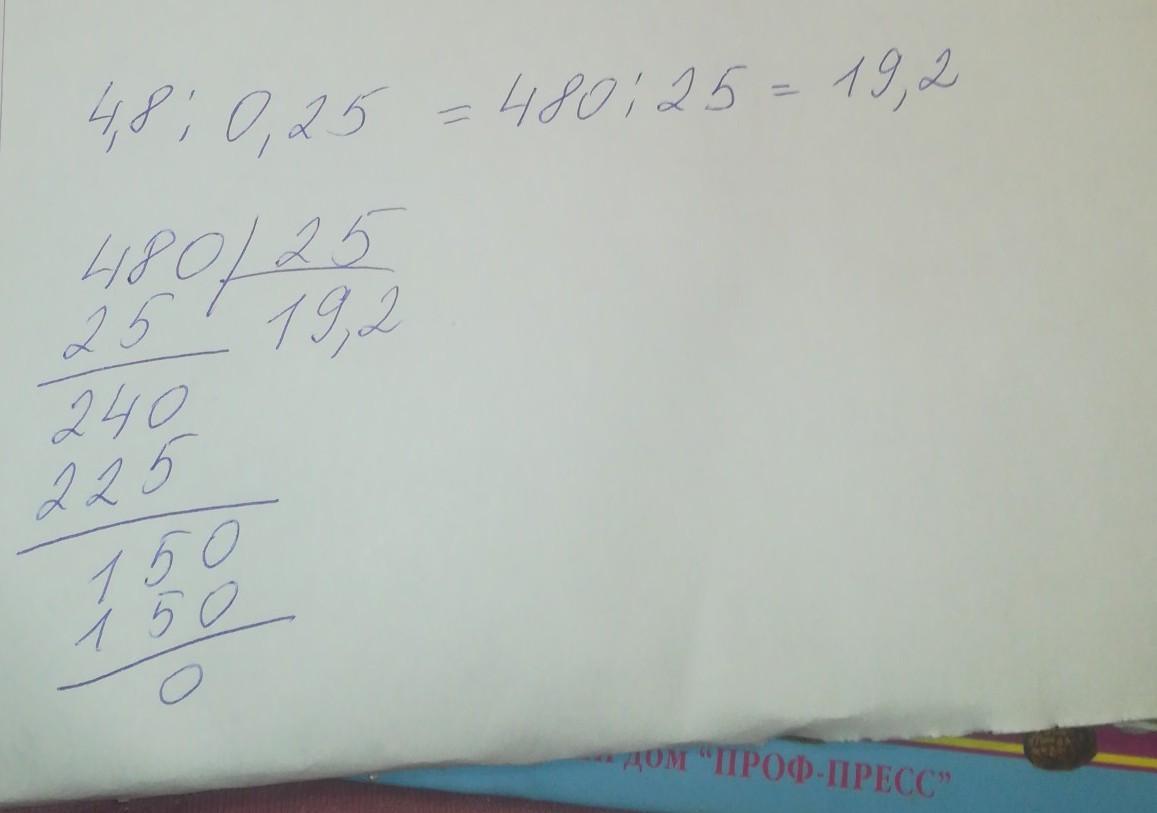 4,8 : 0,25 = 480 : 25 = 19,2
480 25
25 19,2
240
225
150
150
0
ДОМ "ПРОФ-ПРЕСС"